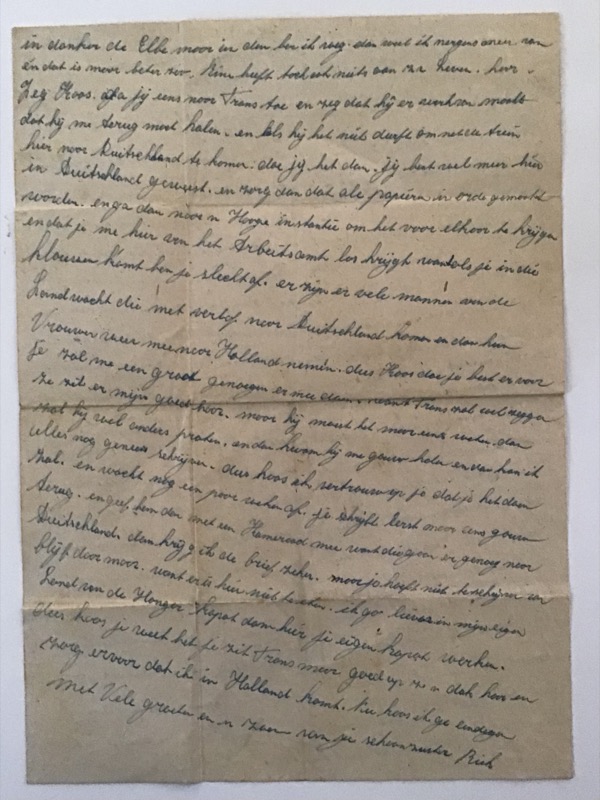 in donker de Elbe maar in dan ben ik weg. dan weet ik nergens meer van
en dat is maar beter zoo. Rien heeft toch ook niets aan ze leven. hoor.
Zeg Koos. ga jij eens naar Frans toe en zeg dat hij er werk van maakt
dat hij me terug moet halen. en als hij het niet durft om met de trein
hier naar Duitschland te komen. doe jij het dan. jij bent wel meer hier
in Duitschland geweest. en zorg dan dat alle papieren in orde gemaakt
worden. en ga dan naar n Hooge instantie om het voor elkaar te krijgen
en dat je me hier van het Arbeitsamt los krijgt want als je in die
klauwen komt ben je slecht af. er zijn er vele mannen van de
Landwacht die met verlof naar Duitschland komen en dan hun
Vrouwen weer mee naar Holland nemen. dus Koos doe je best er voor
Je zal me een groot genoegen er mee doen. want Frans zal wel zeggen
ze zit er mijn goed hoor. maar hij moest het maar eens weten. dan
zal hij wel anders praten. en dan kwam hij me gauw halen en dan kan ik
alles nog genees schrijven. dus koos ik vertrouw op je dat je het doen
zal. en wacht nog een paar weken af. je schrijft eerst maar eens gauw
terug. en geef hem dan met een Kameraad mee want die gaan er genoeg naar
Duitschland. dan krijg ik de brief zeker. maar je hoeft niet te schrijven van
blijf daar maar. want er is hier niet te eten. ik ga liever in mijn eigen
Land van de Honger kapot dan hier je eigen kapot werken.
dus koos je weet het je zit Frans maar goed op ze n dak hoor en
zorg ervoor dat ik in Holland komt. Nu koos ik ga eindigen
met Vele groeten en n zoen van je schoonzuster Riek